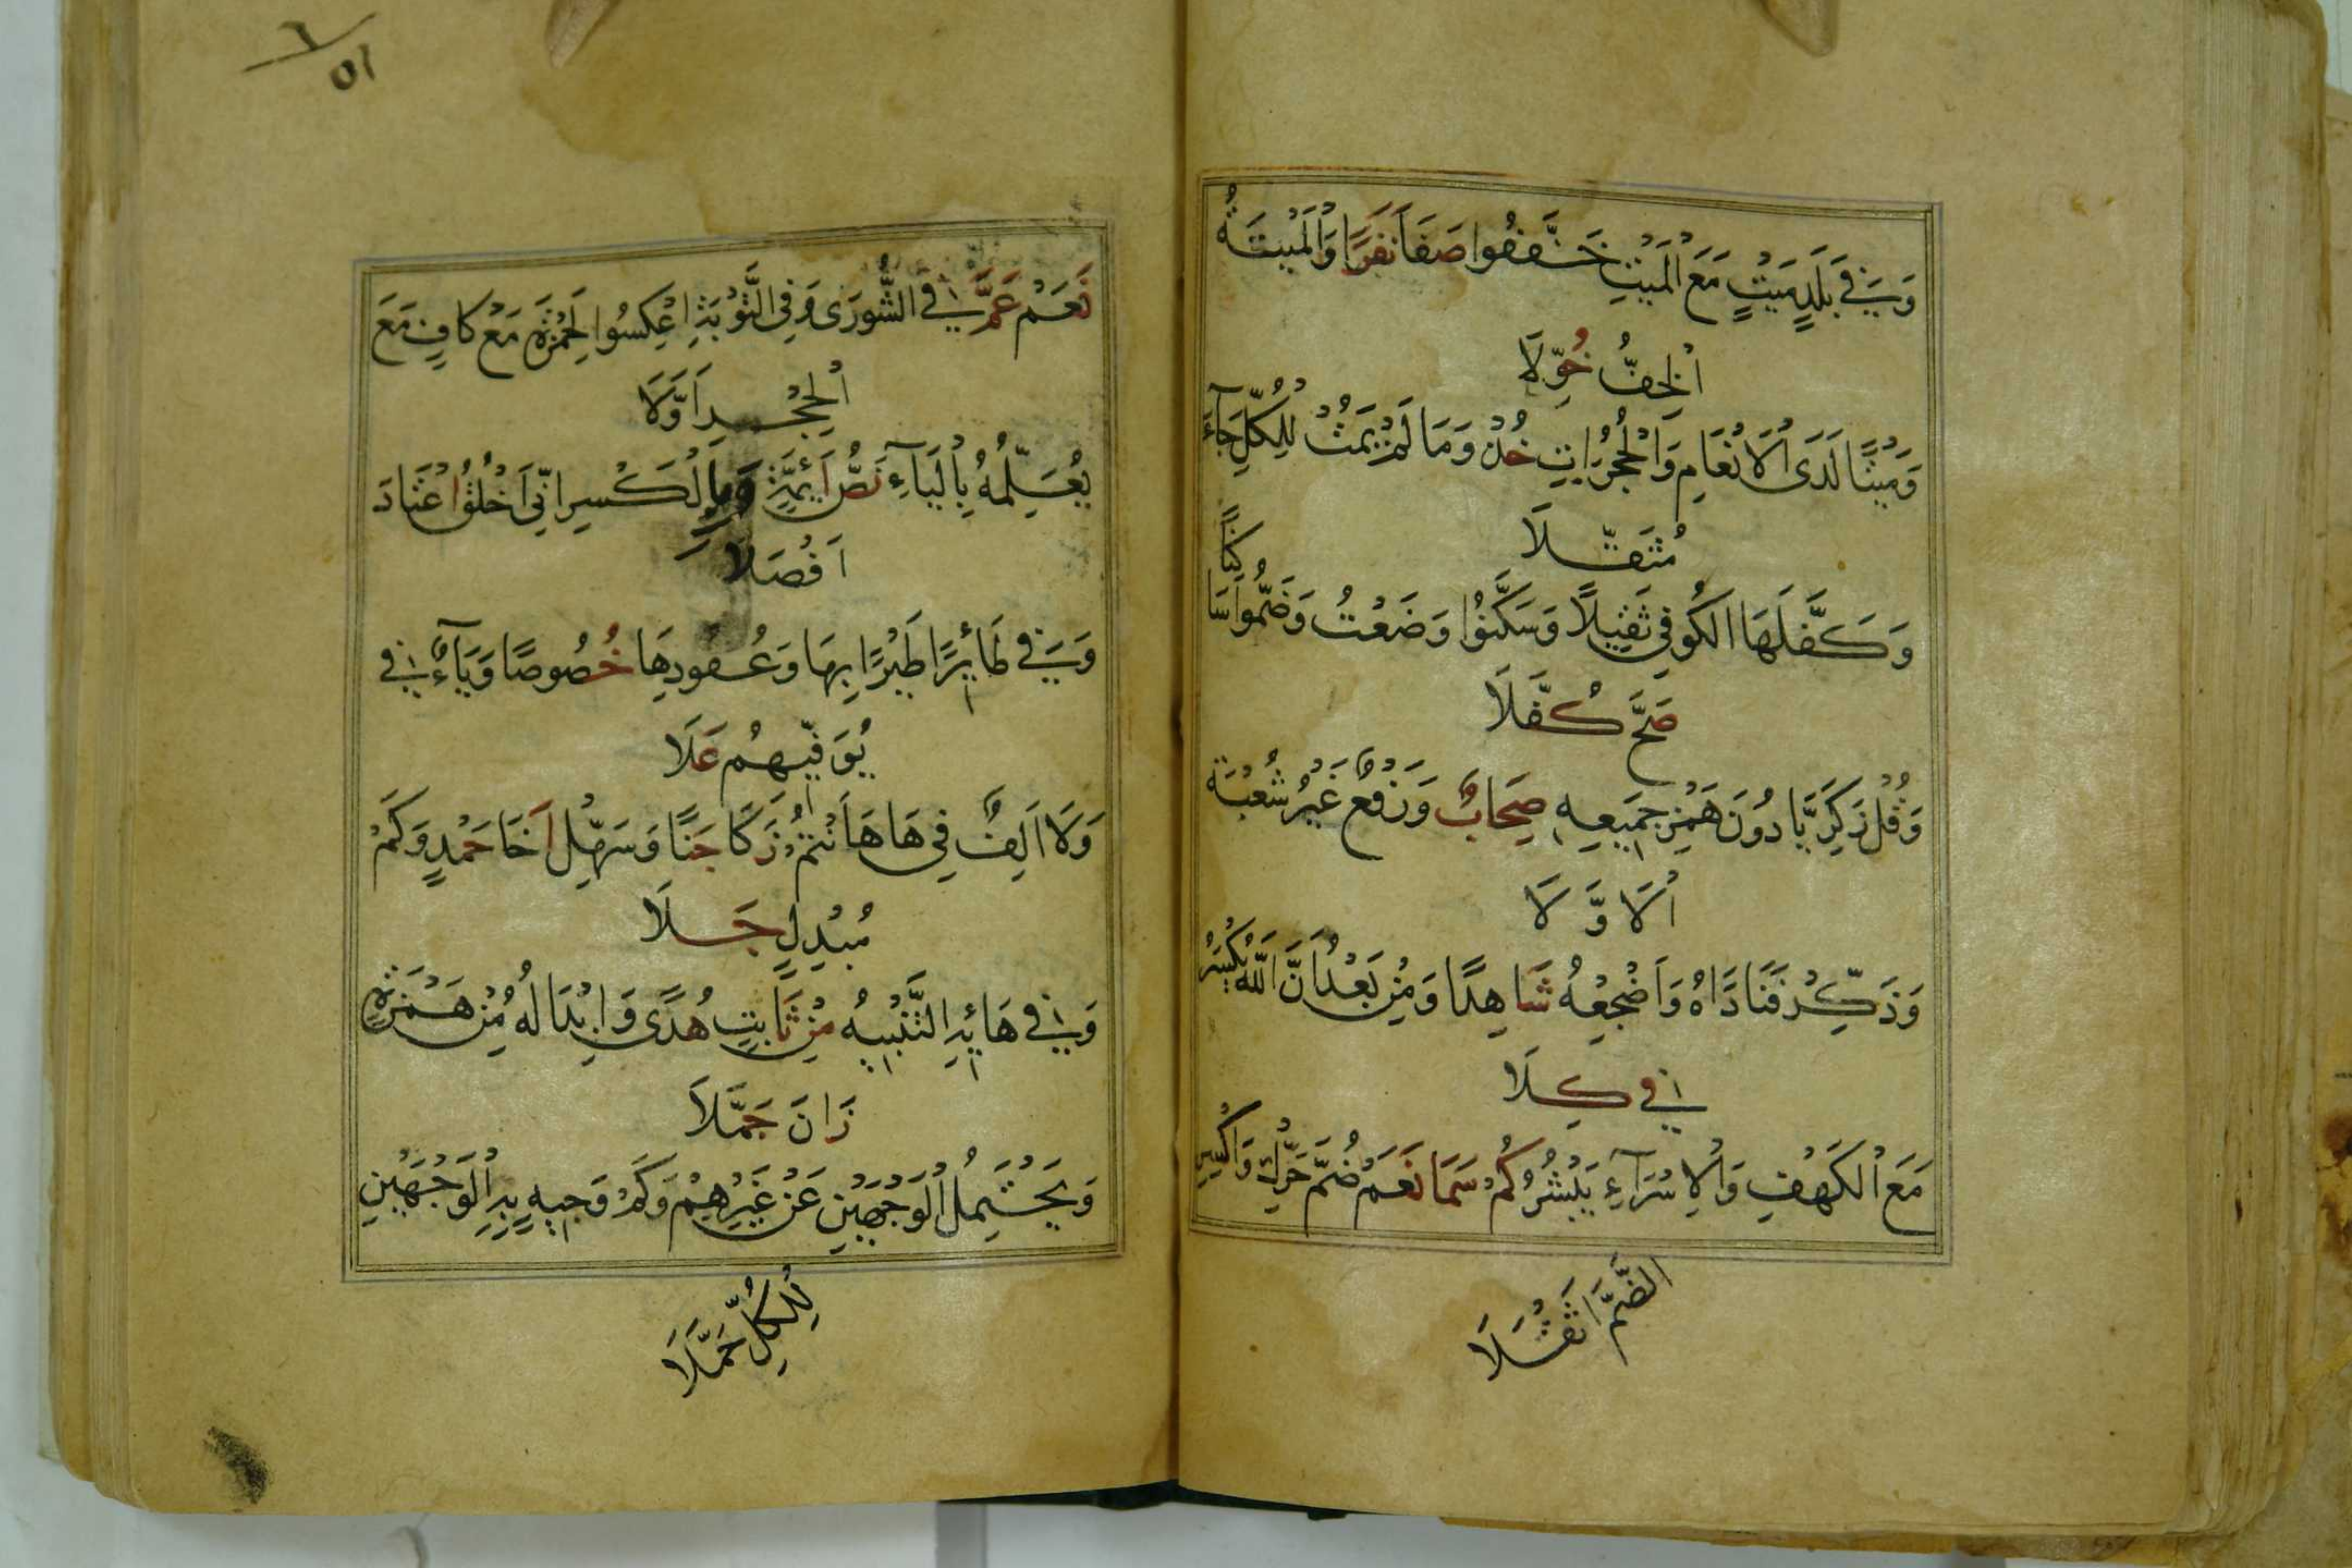 وَفِي بَلَدٍ مَيْتٍ مَعَ الْمَيْتِ خَفَّفُوا صَفَا نَفَرًا وَالْمَيْتَةُ
الْخِفُّ خُوِّلَا
وَمَيْتًا لَدَى الْاَنْعَامِ وَالْحُجُرَاتِ خُذْ وَمَا لَمْ يَمُتْ لِلْكُلِّ جَآءَ
مُثَقَّلَا
وَكَفَّلَهَا الْكُوفِي ثَقِيلًا وَسَكَّنُوا وَضَعْتُ وَضَمُّوا سَاكِنًا
صَحَّ كُفَّلَا
وَقُلْ زَكَرِيَّا دُونَ هَمْزِ جَمِيعِهِ صِحَابٌ وَرَفْعٌ غَيْرُ شُعْبَةَ
الْاَوَّلَا
وَذَكِّرْ فَنَادَاهُ وَاَضْجِعْهُ شَاهِدًا وَمِنْ بَعْدُ اَنَّ اللّٰهَ يُكْسَرُ
فِي كِلَا
مَعَ الْكَهْفِ وَالْاِسْرَآءِ يَبْشُرُ كَمْ سَمَا نَعَمْ ضُمَّ حَرِّكْ وَاكْسِرِ
الضَّمَّ اَثْقَلَا
٦
٥١
نَعَمْ عَمَّ فِي الشُّورَى وَفِي التَّوْبَةِ اعْكِسُوا لِحَمْزَةَ مَعْ كَافٍ مَعَ
الْحِجْرِ اَوَّلَا
يُعَلِّمُهُ بِالْيَآءِ نَصُّ اَئِمَّةٍ وَبِالْكَسْرِ اِنِّي اَخْلُقُ اعْتَادَ
اَفْصَلَا
وَفِي طَائِرًا طَيْرًا بِهَا وَعُقُودِهَا خُصُوصًا وَيَآءٌ فِي
يُوَفِّيهِمُ عَلَا
وَلَا اَلِفٌ فِي هَا هَاَنْتُمْ زَكَا جَنًا وَسَهِّلْ اَخَا حَمْدٍ وَكَمْ
مُبْدِلٍ جَلَا
وَفِي هَائِهِ التَّنْبِيهُ مِنْ ثَابِتٍ هُدًى وَاِبْدَالُهُ مِنْ هَمْزَةٍ
زَانَ جَمَّلَا
وَيَحْتَمِلُ الْوَجْهَيْنِ عَنْ غَيْرِهِمْ وَكَمْ وَجِيهٍ بِهِ الْوَجْهَيْنِ
لِلْكُلِّ حَمَّلَا